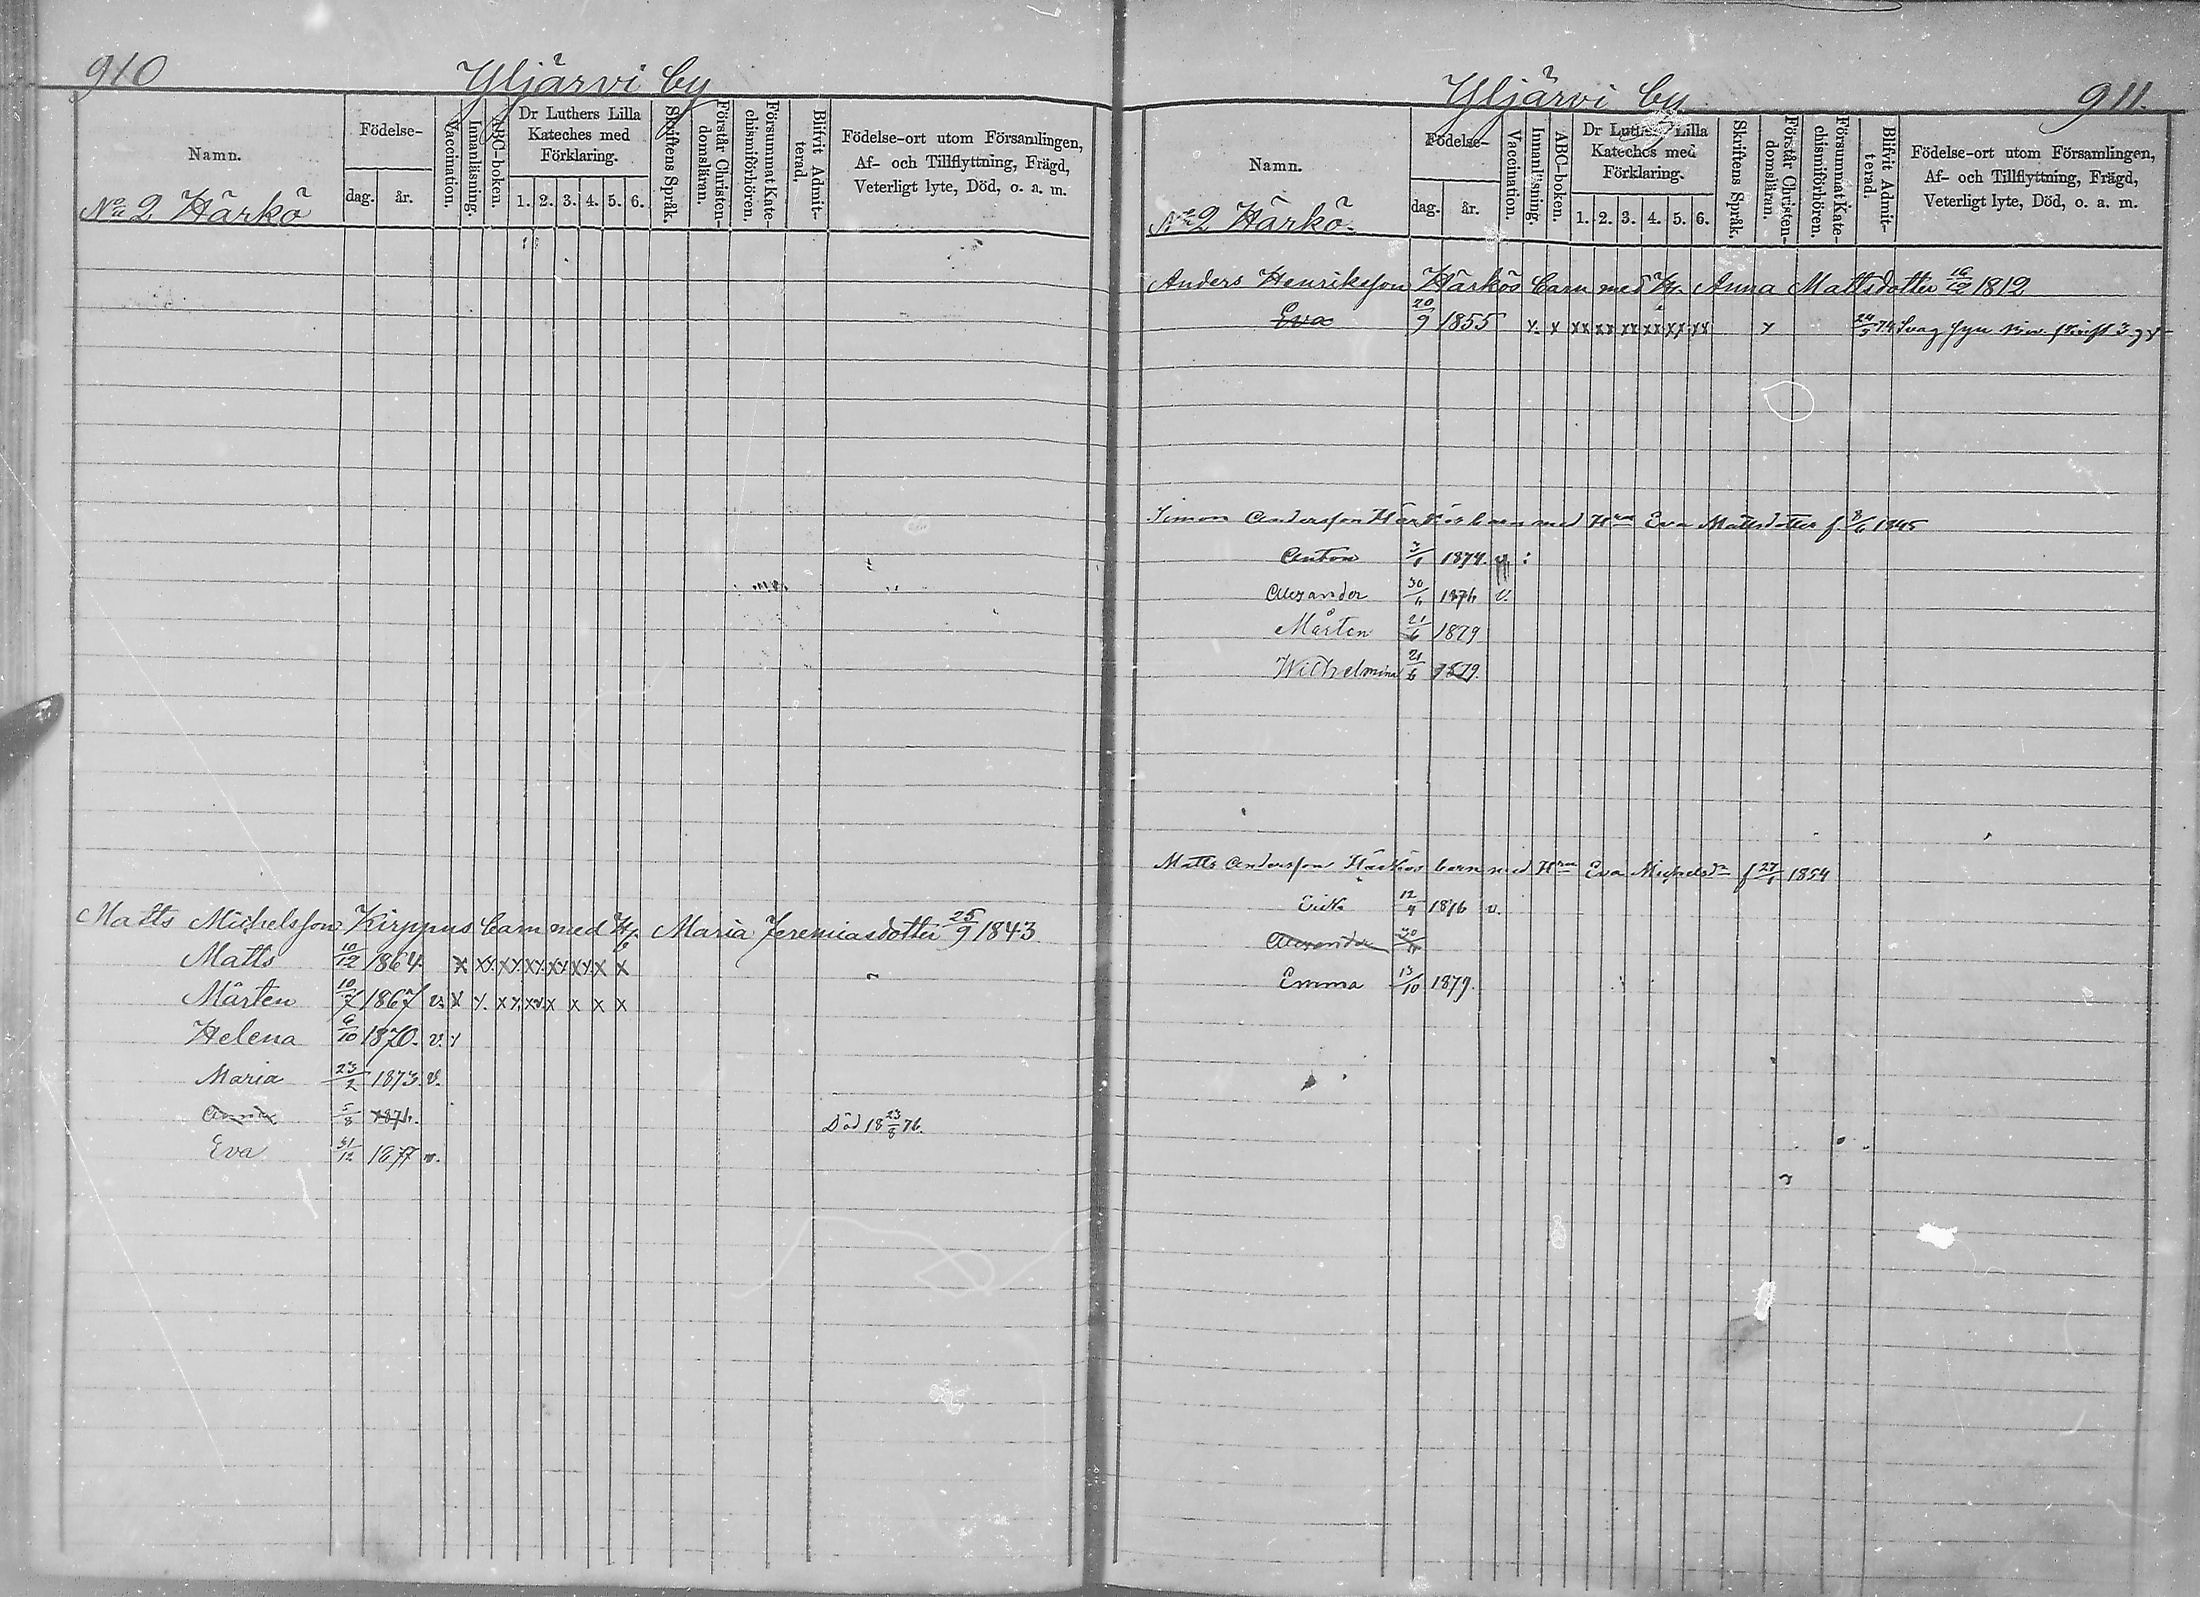 910
Yljärvi by
Namn.
Födelse-
dag. år.
Vaccination.
Innanläsning.
ABC-boken.
Dr Luthers Lilla
Kateches med
Förklaring.
1. 2. 3. 4. 5. 6.
Skriftens Språk.
Förstår Christen-
domsläran.
Försummat Kate-
chismiförhören.
Blifvit Admit-
terad.
Födelse-ort utom Församlingen,
Af- och Tillflyttning, Frägd,
Veterligt lyte, Död, o. a. m.
No 2 Härkö
Matts Michelsson Kirppus barn med H. Maria Jeremiasdotter 25/9 1843
Matts 10/12 1864. x xx xx xx xx xx x x
Mårten 10/7 1867 v. x x x x xx x x x x
Helena 6/10 1870. v. x
Maria 23/2 1873. v.
5/8 1876. Död 18 23/8 76.
Eva 31/12 1877 v.
Yljärvi by
911.
Namn.
Födelse-
dag. år.
Vaccination.
Innanläsning.
ABC-boken.
Dr Luthers Lilla
Kateches med
Förklaring.
1. 2. 3. 4. 5. 6.
Skriftens Språk.
Förstår Christen-
domsläran.
Försummat Kate-
chismiförhören.
Blifvit Admit-
terad.
Födelse-ort utom Församlingen,
Af- och Tillflyttning, Frägd,
Veterligt lyte, Död, o. a. m.
No 2 Härkö.
Anders Henriksson Härkös barn med H. Anna Mattsdotter 16/12 1812
Eva 20/9 1855 x. x xx xx xx xx xx xx x 24/5 74 Svag syn
Simon Andersson Härkös barn med Hru Eva Mattsdotter f. 8/6 1845
Anton 1874.
Alexander 30/6 1876 v.
Mårten 21/6 1879
Wilhelmina 21/6 1879.
Matts Andersson Härkös barn med Hru Eva Michelsdr f 1854
Erik 12/4 1876 v.
Alexander 30
Emma 13/10 1879.